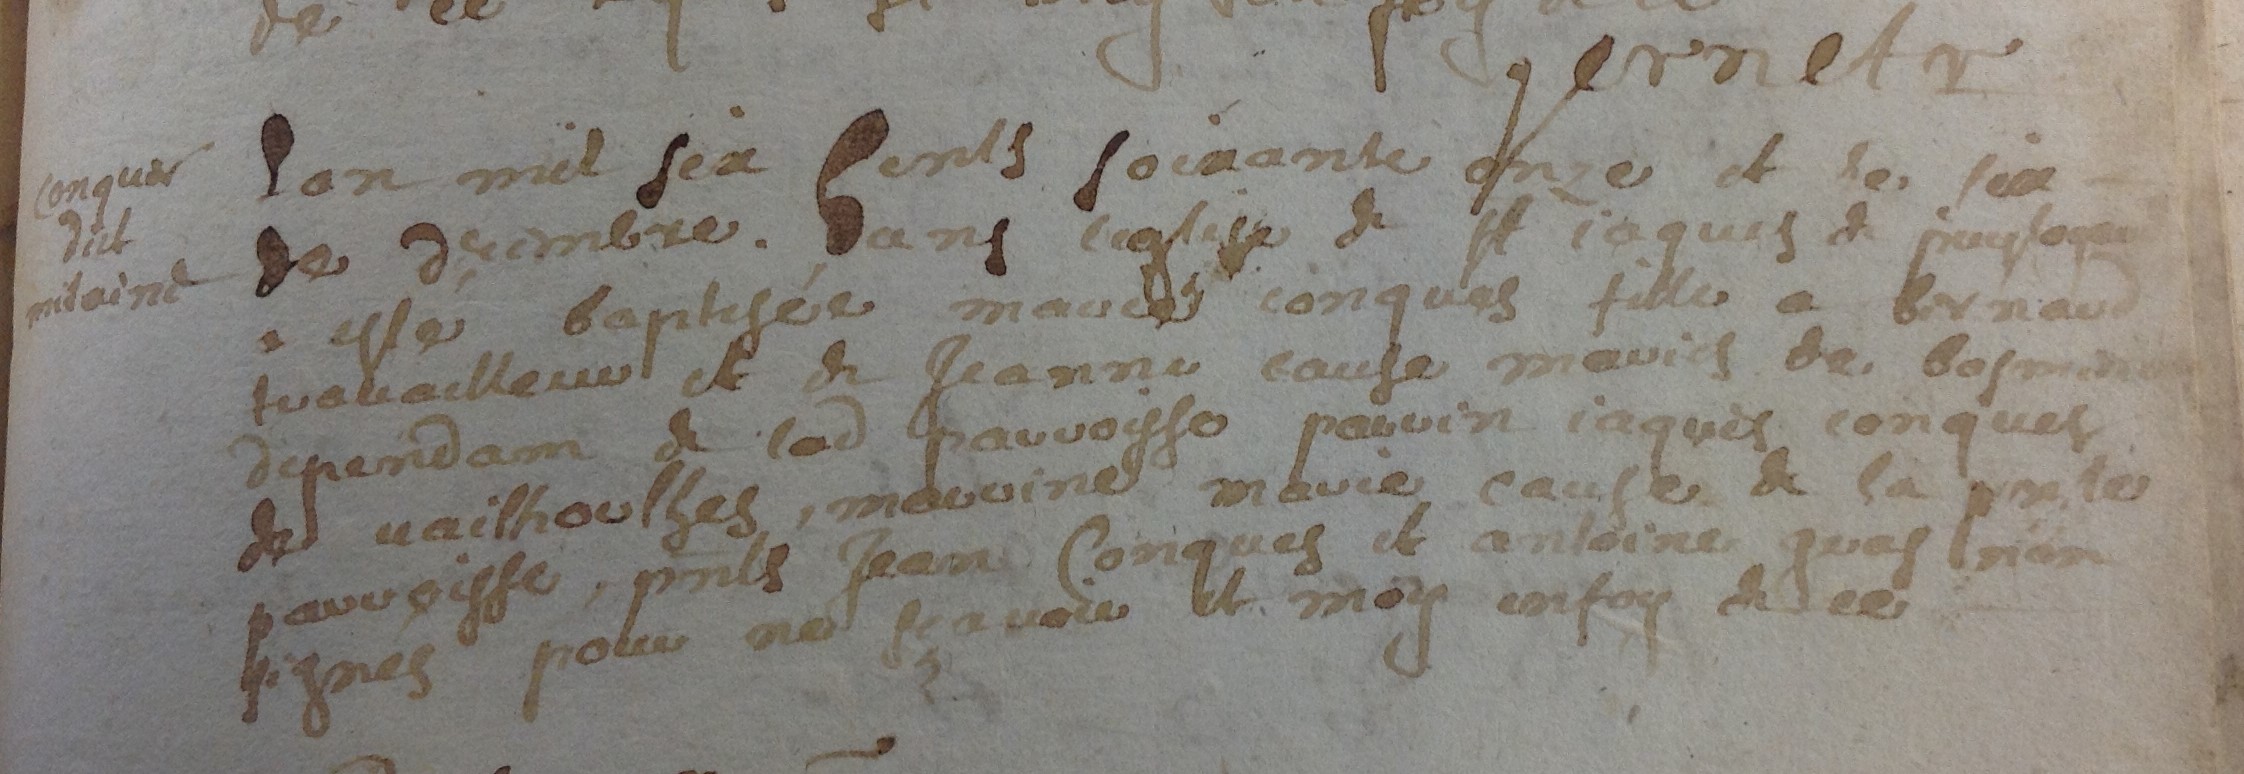 vernet
conques
dit
mitaine
lan mil six cents soixante onze et le six
de decembre. dans leglise de st iaques de
a esté baptisée marie conques fille a bernard
travailleur et de Jeanne cause mariés de
dependam de lad parroisse parrin iaques conques
de vailhoulhes, marrine marie cause de la pnte
parroisse, pnts Jean Conques et antoine gras non
signés pour ne scavoir et moy en foy de ce